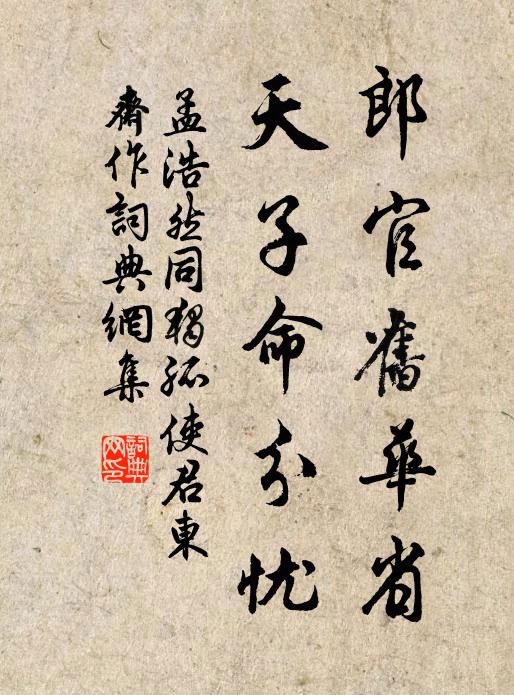 郎官舊華省
天子命分忧
孟浩然同獨孤使君東
齋作詞典網集
詞典網印